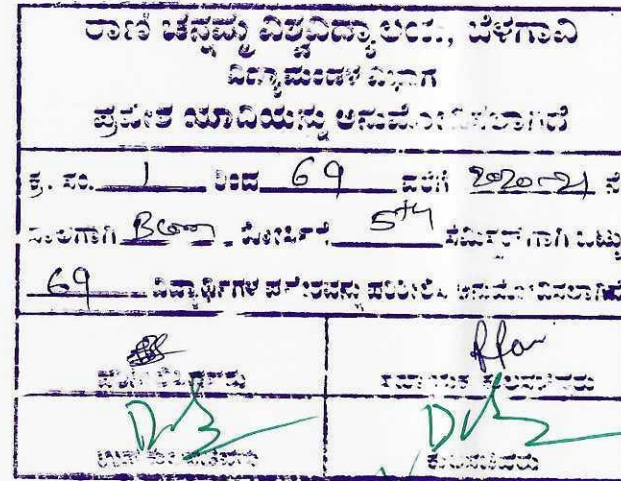 ರಾಣಿ ಚನ್ನಮ್ಮ ವಿಶ್ವವಿದ್ಯಾಲಯ, ಬೆಳಗಾವಿ
ವಿದ್ಯಾಮಂಡಳ ವಿಭಾಗ
ಪ್ರವೇಶ ಯಾದಿಯನ್ನು ಅನುಮೋದಿಸಲಾಗಿದೆ
ಕ್ರ. ಸಂ. 1 ರಿಂದ 69 ವರೆಗೆ 2020-21 ನೇ
ಸಾಲಿಗಾಗಿ BCom ಕೋರ್ಸಿಗೆ 5th ಸೆಮಿಸ್ಟರ್ ಗಾಗಿ ಒಟ್ಟು
69 ವಿದ್ಯಾರ್ಥಿಗಳ ಪ್ರವೇಶವನ್ನು ಪರಿಶೀಲಿಸಿ ಅನುಮೋದಿಸಲಾಗಿದೆ